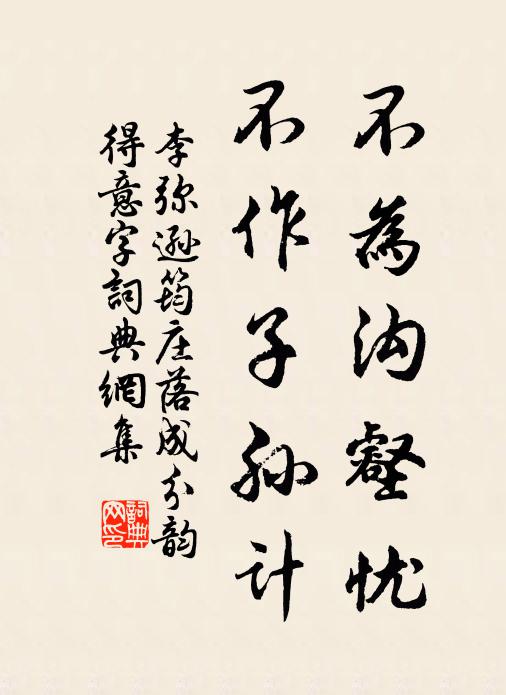 不為沟壑忧
不作子孙计
李弥逊筠庄落成分韵
得意字詞典網集
詞典
网印